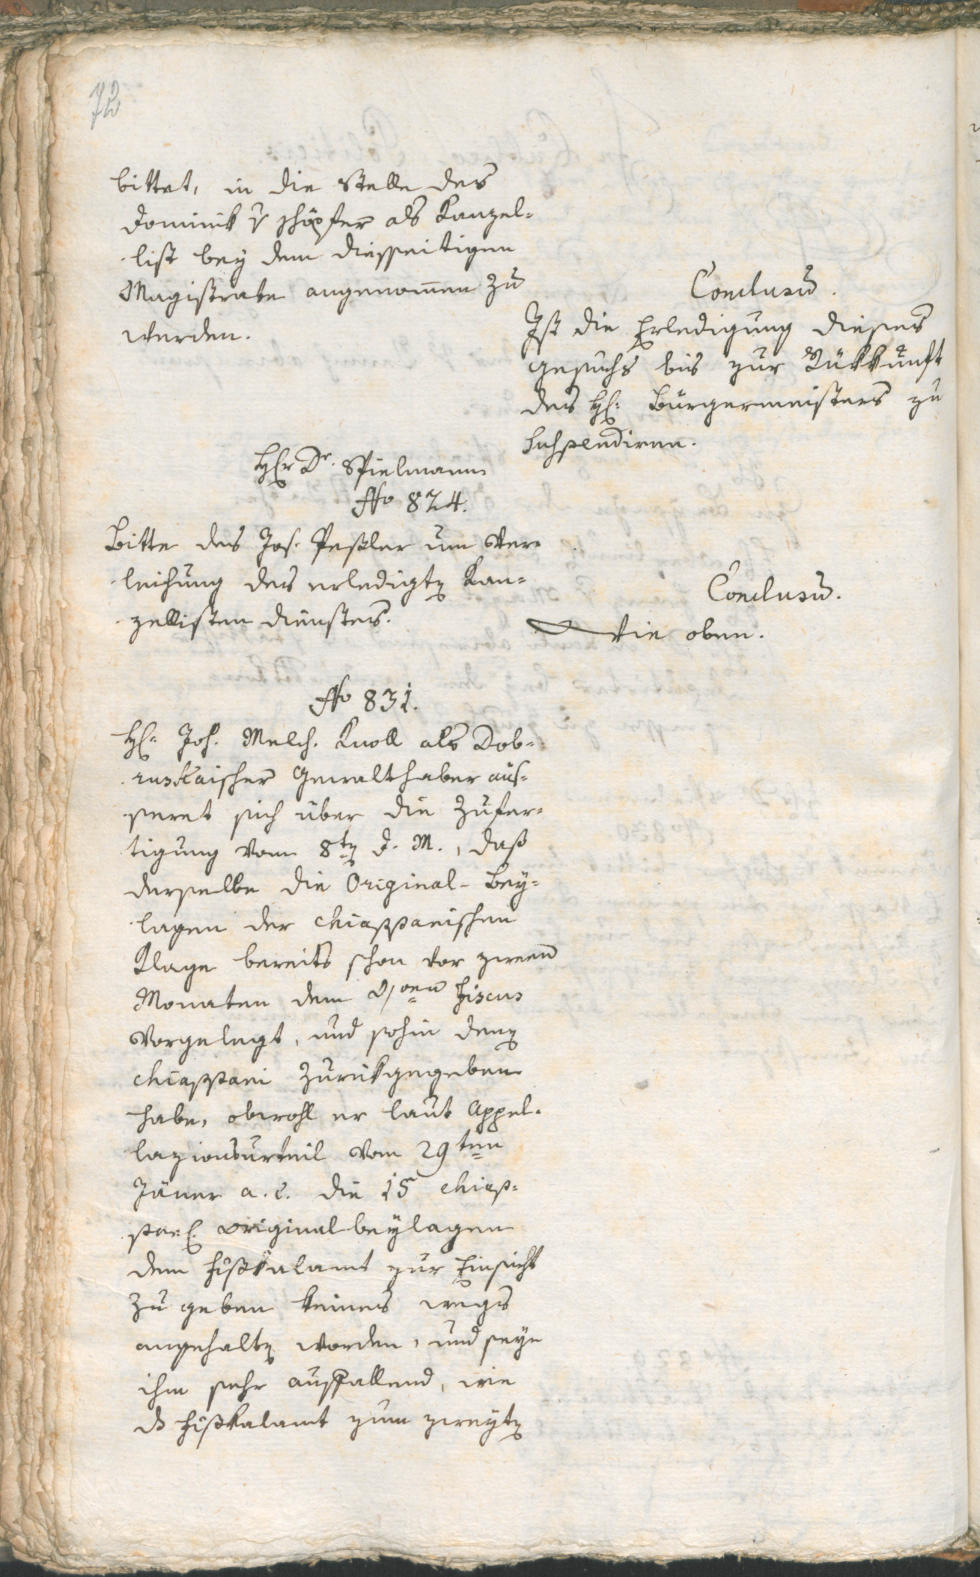 72
bittet, in die Stelle des
Dominik v Schöpfer als Kanzel-
list bey dem diesseitigen
Magistrate angenommen zu
werden.
Conclusũ.
Ist die Erledigung dieses
Gesuchs bis zur Rükkunft
des H: Bürgermeisters zu
suspendiren.
Hr Dr. Spielmann
No 824.
Bitte des Jos. Peßler um Ver-
leihung des erledigten Kan-
zellisten dienstes.
Conclusũ.
Wie oben.
No 831.
H: Joh. Melch. Knoll als Dob-
ruskaischer Gewalthaber äus-
seret sich über die Zufer-
tigung vom 8ten d. M., daß
derselbe die Original-Bey-
lagen der Chiassanischen
Klage bereits schon vor zween
Monaten dem Fiscus
vorgelegt, und sohin dem
Chiassani zurükgegeben
habe, obwohl er laut Appel-
lazionsurteil vom 29ten
Jäner a. c. die 15 Chias-
originalbeylagen
dem Fißkalamt zur Einsicht
zu geben keines wegs
angehalten worden, und seye
ihm sehr auffallend, wie
ds Fißkalamt zum zweyten